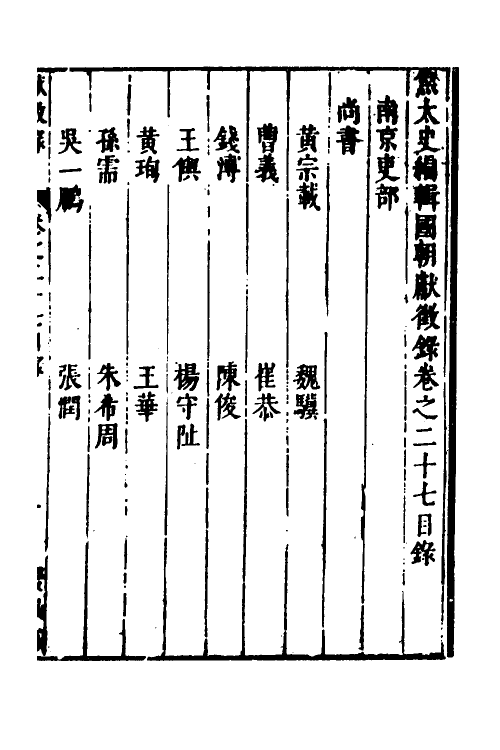 焦太史編輯國朝獻徵錄卷之二十七目錄
南京吏部
尚書
黃宗載 魏驥
曹義 崔恭
錢溥 陳俊
王㒜 楊守阯
黃珣 王華
孫需 朱希周
吳一鵬 張潤